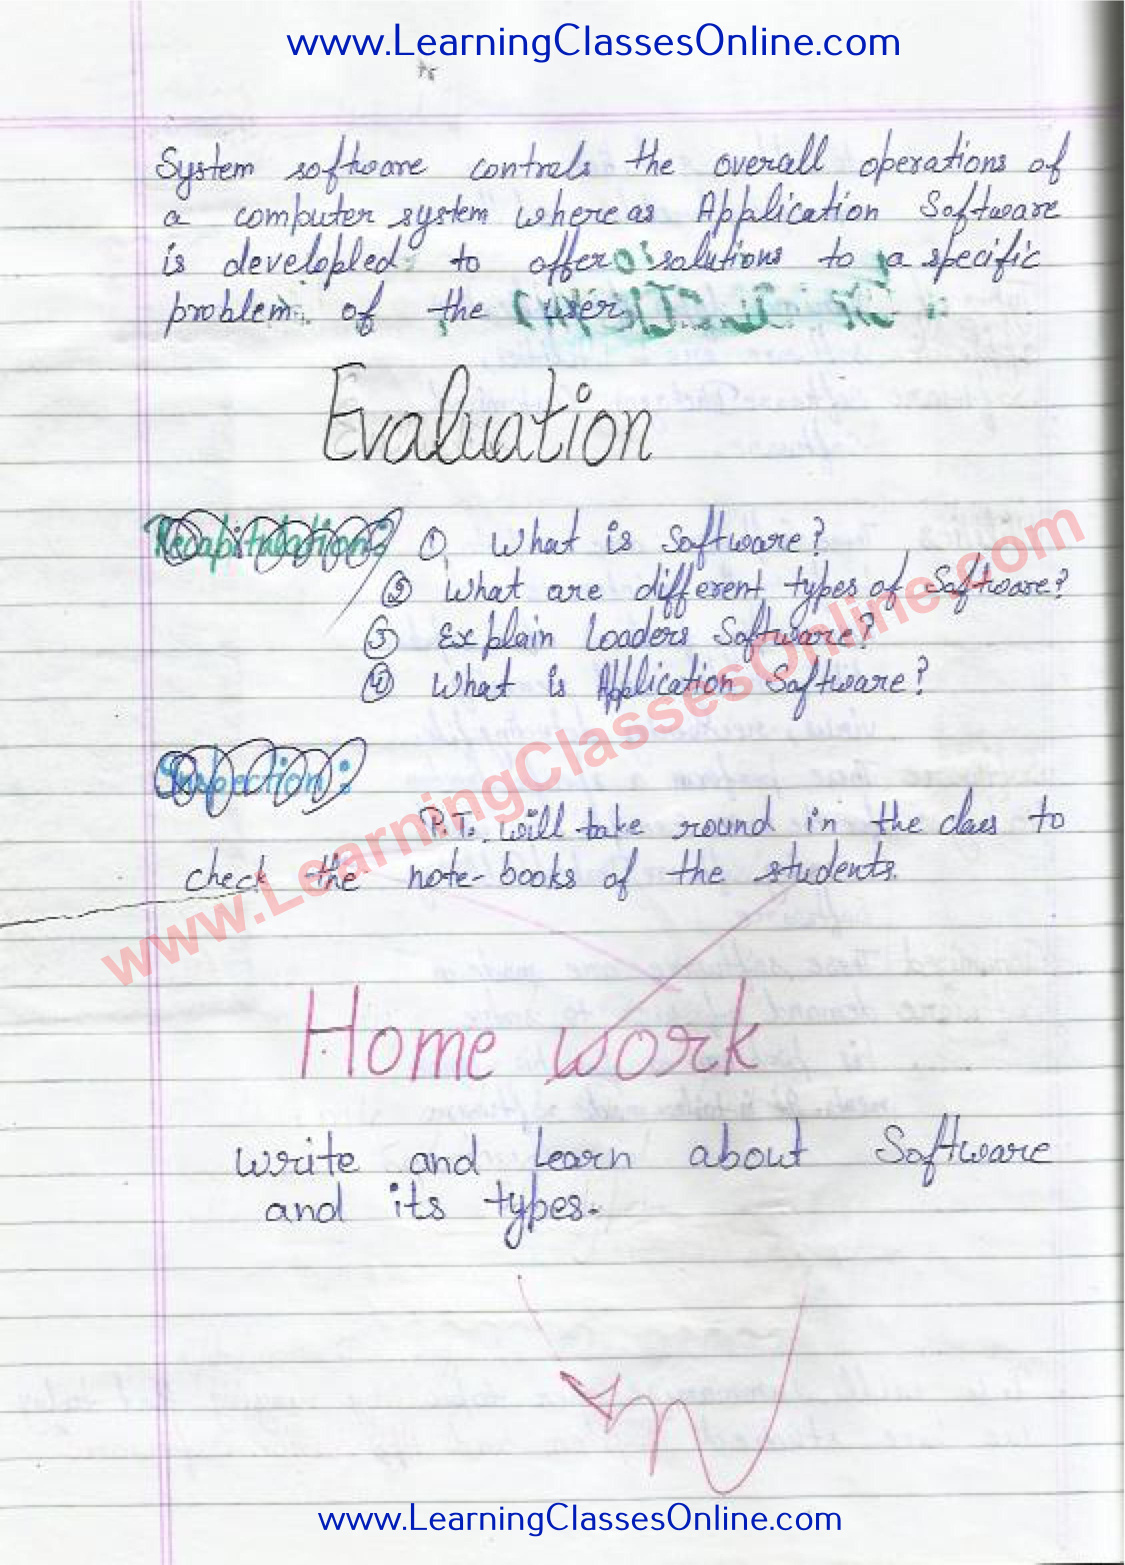 www.LearningClassesOnline.com
System software controls the overall operations of
a computer system whereas Application Software
is developled to offer solutions to a specific
problem of the user
Evaluation
Recapitulation: ① What is Software?
② What are different types of Software?
③ Explain Loaders Software?
④ What is Application Software?
Inspection:
P.T. will take round in the class to
check the note-books of the students.
www.LearningClassesOnline.com
Home work
write and Learn about Software
and its types.
www.LearningClassesOnline.com